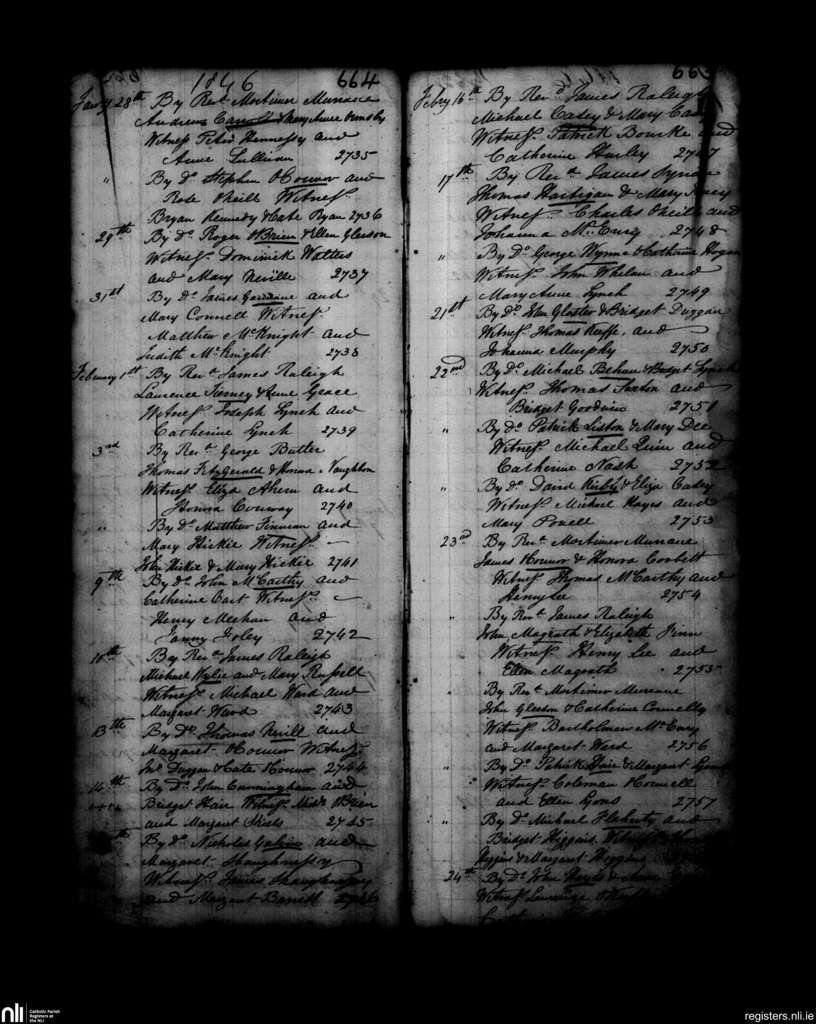 1846 664
Jany 28th By Revd. Mortimer Murnane
Andrew & Mary Anne Ormsby
Witness Peter Hennessy and
Anne Sullivan 2735
" By Do. Stephen O'Connor and
Rose O'Neill Witness.
Bryan Kennedy & Cate Ryan 2736
29th By Do. Roger O'Brien & Ellen Gleeson
Witness Dominick Watters
and Mary Neville 2737
31st By Do. James and
Mary Connell Witness
Matthew McKnight and
Judith McKnight 2738
February 1st By Revd. James Raleigh
Laurence Tierney & Anne Grace
Witness Joseph Lynch and
Catherine Lynch 2739
3rd By Revd. George Butler
Thomas FitzGerald & Honora Naughton
Witness. Eliza Ahern and
Honora Conway 2740
" By Do. Matthew Finnean and
Mary Hickie Witness.
John Hickie & Mary Hickie 2741
9th By Do. John McCarthy and
Catherine Witness.
Henry Meehan and
Foley 2742
10th By Revd. James Raleigh
Michael Wylie and Mary Russell
Witness. Michael Ward and
Margaret Ward 2743
13th By Do. Thomas Nevill and
Margaret O'Connor Witness.
Jno. Duggan & Cate O'Connor 2744
14th By Do. John Cunningham and
Bridget Hair Witness. O'Brien
and Margaret 2745
th By Do. Nicholas and
Margaret Shaughnessy
Witness. James Shaughnessy
and Margaret Barrett 2746
Febry 16th By Revd. James Raleigh
Michael Casey & Mary
Witness. Patrick Bourke and
Catherine Hurley 2747
17th By Revd. James Synan
Thomas Hartigan & Mary
Witness. Charles O'Neill and
Johanna McEnry 2748
" By Do. George Wynne & Catherine Hogan
Witness. John Whelan and
Mary Anne Lynch 2749
21st By Do. John Gloster & Bridget Duggan
Witness. Thomas Keeffe, and
Johanna Murphy 2750
22nd By Do. Michael Behan & Bridget Lynch
Witness. Thomas Sexton and
Bridget Goodwin 2751
" By Do. Patrick Liston & Mary Dee
Witness. Michael Quin and
Catherine Nash 2752
" By Do. David Kirby & Eliza Casey
Witness. Michael Hayes and
Mary Powell 2753
23rd By Revd. Mortimer Murnane
James O'Connor & Honora Corbett
Witness. Thomas McCarthy and
Henry Lee 2754
" By Revd. James Raleigh
John Magrath & Elizabeth Finn
Witness. Henry Lee and
Ellen Magrath 2755
" By Revd. Mortimer Murnane
John Gleeson & Catherine Connelly
Witness. Bartholomew McEnry
and Margaret Ward 2756
" By Do. Patrick & Margaret Lyons
Witness. Coleman O'Connell
and Ellen Lyons 2757
" By Do. Michael Flaherty and
Bridget Higgins. Witness.
Higgins & Margaret Higgins
24th By Do. John & Anne
Witness. Laurence
nli Catholic Parish
Registers at
the NLI
registers.nli.ie